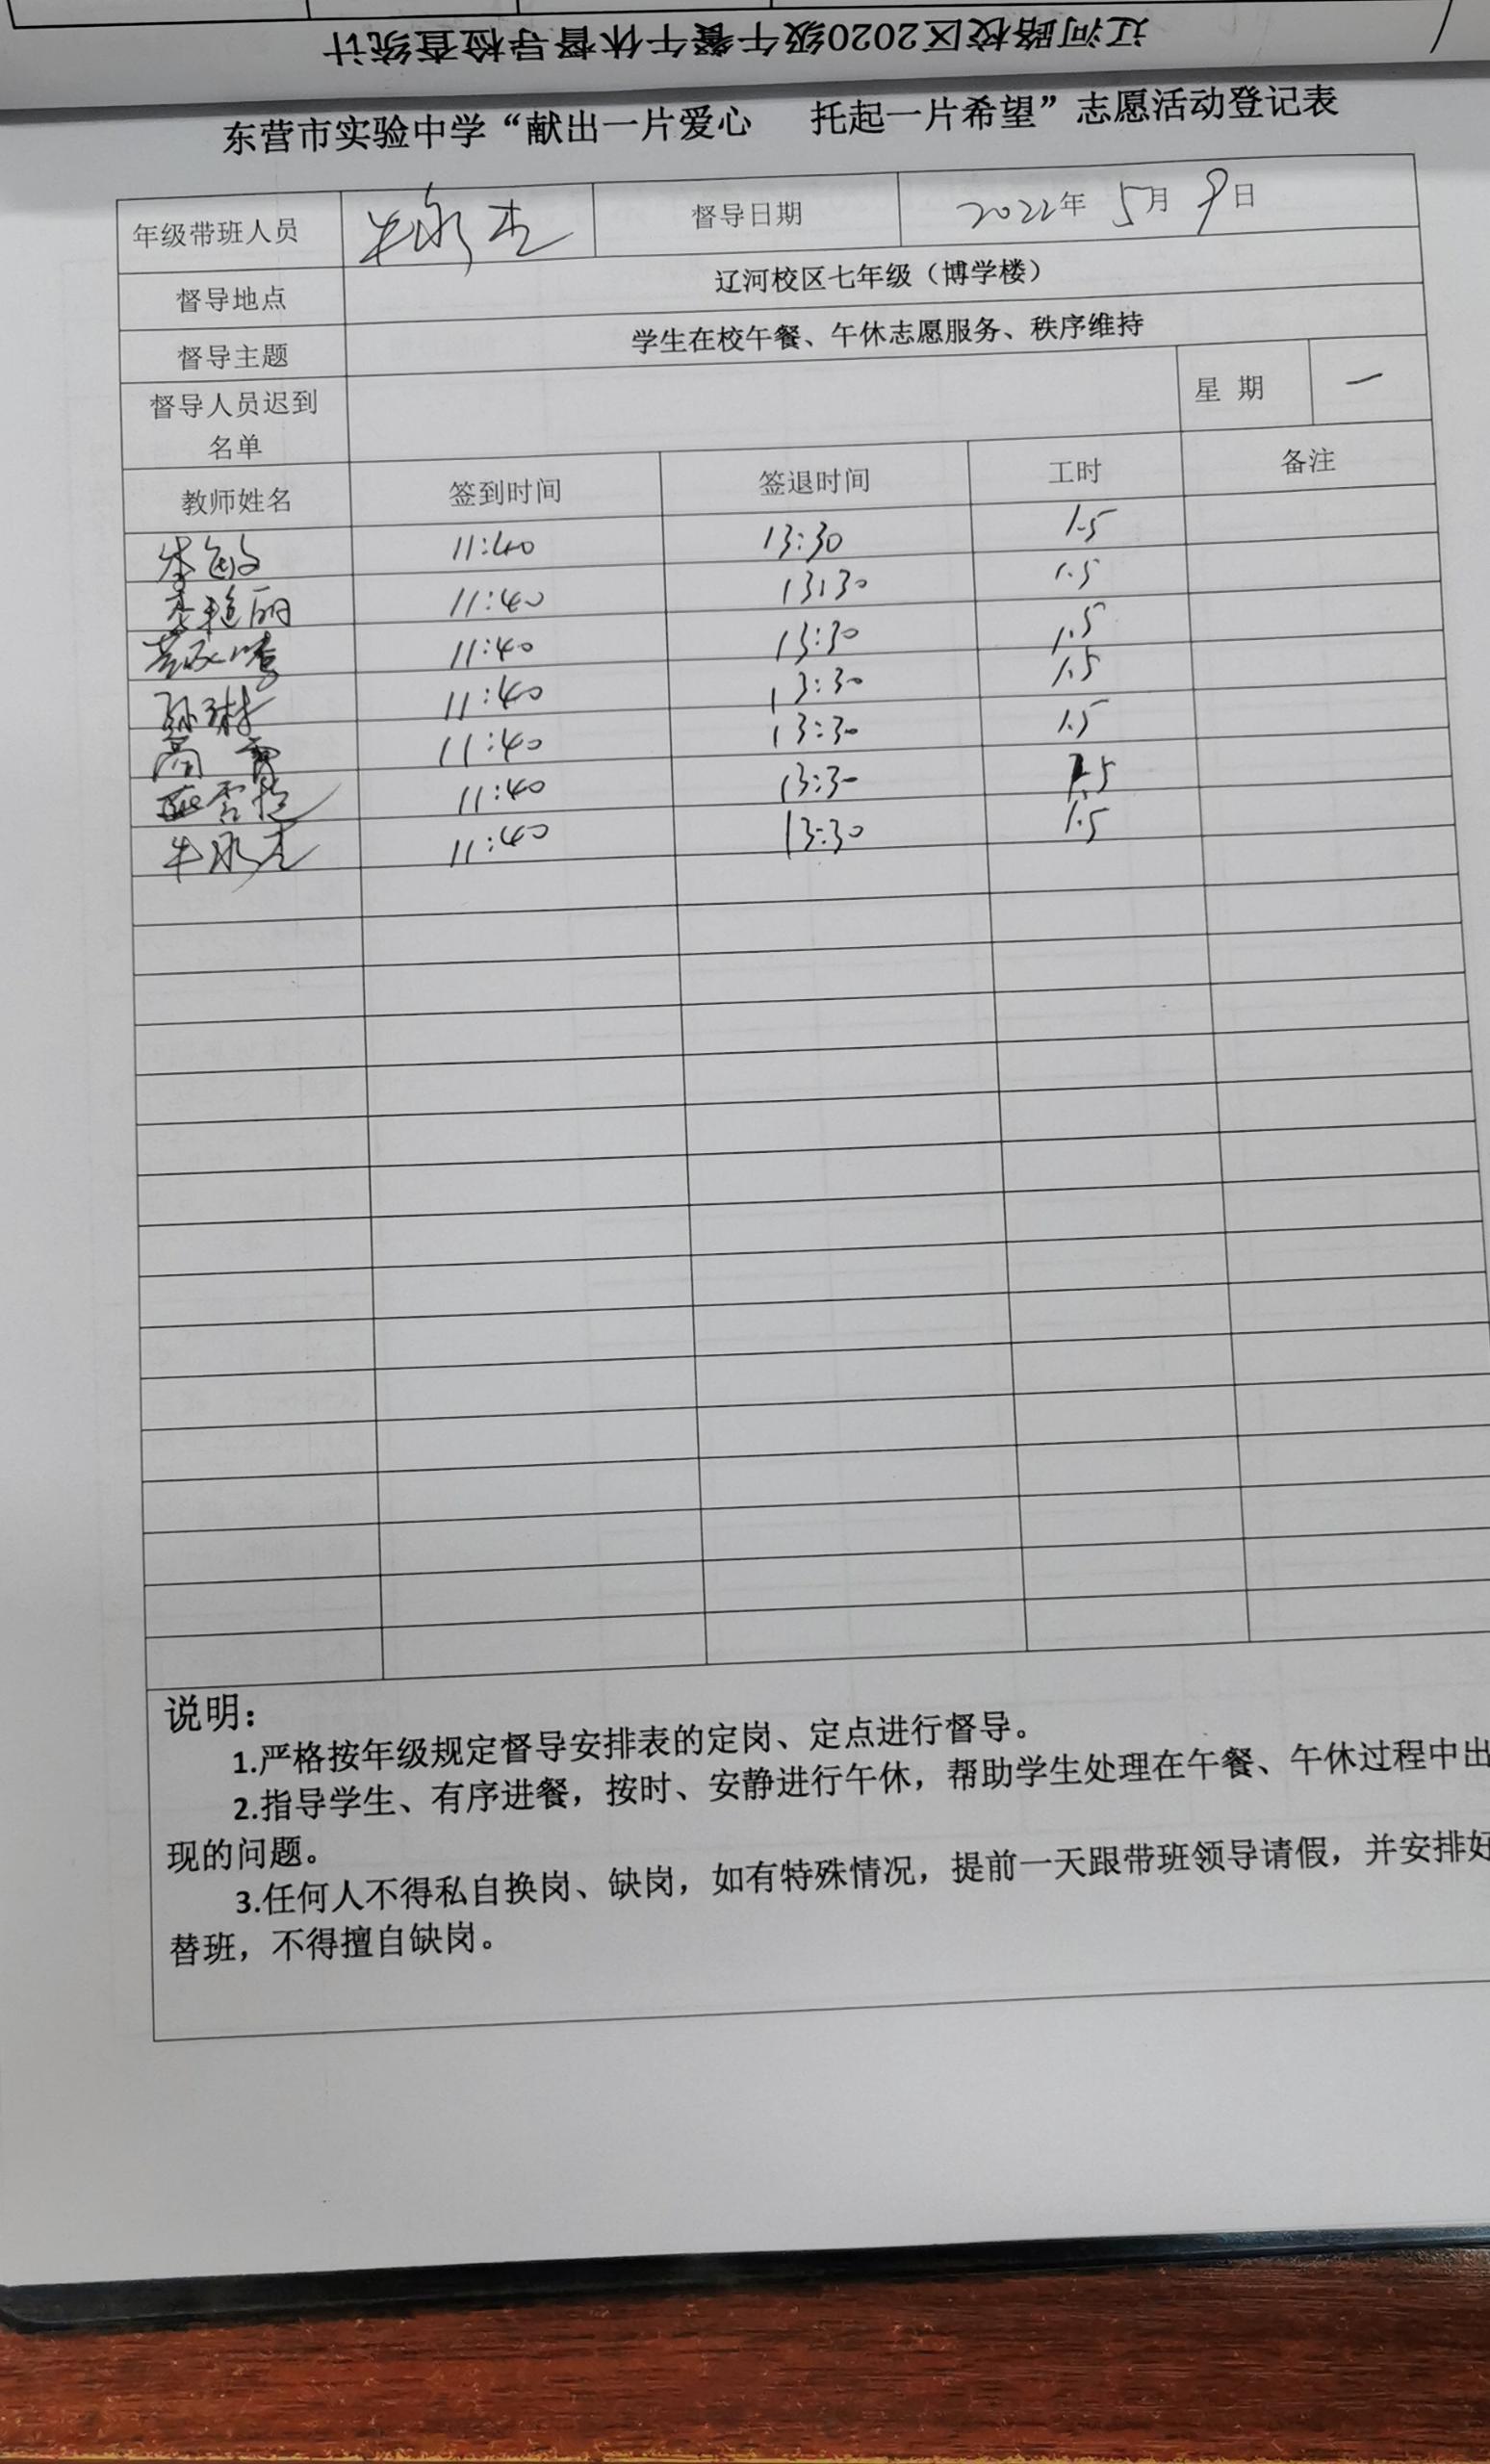 辽河路校区2020级午餐午休督导检查统计
东营市实验中学“献出一片爱心 托起一片希望”志愿活动登记表
年级带班人员 牛永杰 督导日期 2022年 5月 9日
督导地点 辽河校区七年级（博学楼）
督导主题 学生在校午餐、午休志愿服务、秩序维持
督导人员迟到名单 星 期 一
教师姓名 签到时间 签退时间 工时 备注
11:40 13:30 1.5
李艳丽 11:40 13:30 1.5
11:40 13:30 1.5
孙琳 11:40 13:30 1.5
高 11:40 13:30 1.5
11:40 13:30 1.5
牛永杰 11:40 13:30 1.5
说明：
1.严格按年级规定督导安排表的定岗、定点进行督导。
2.指导学生、有序进餐，按时、安静进行午休，帮助学生处理在午餐、午休过程中出
现的问题。
3.任何人不得私自换岗、缺岗，如有特殊情况，提前一天跟带班领导请假，并安排好
替班，不得擅自缺岗。